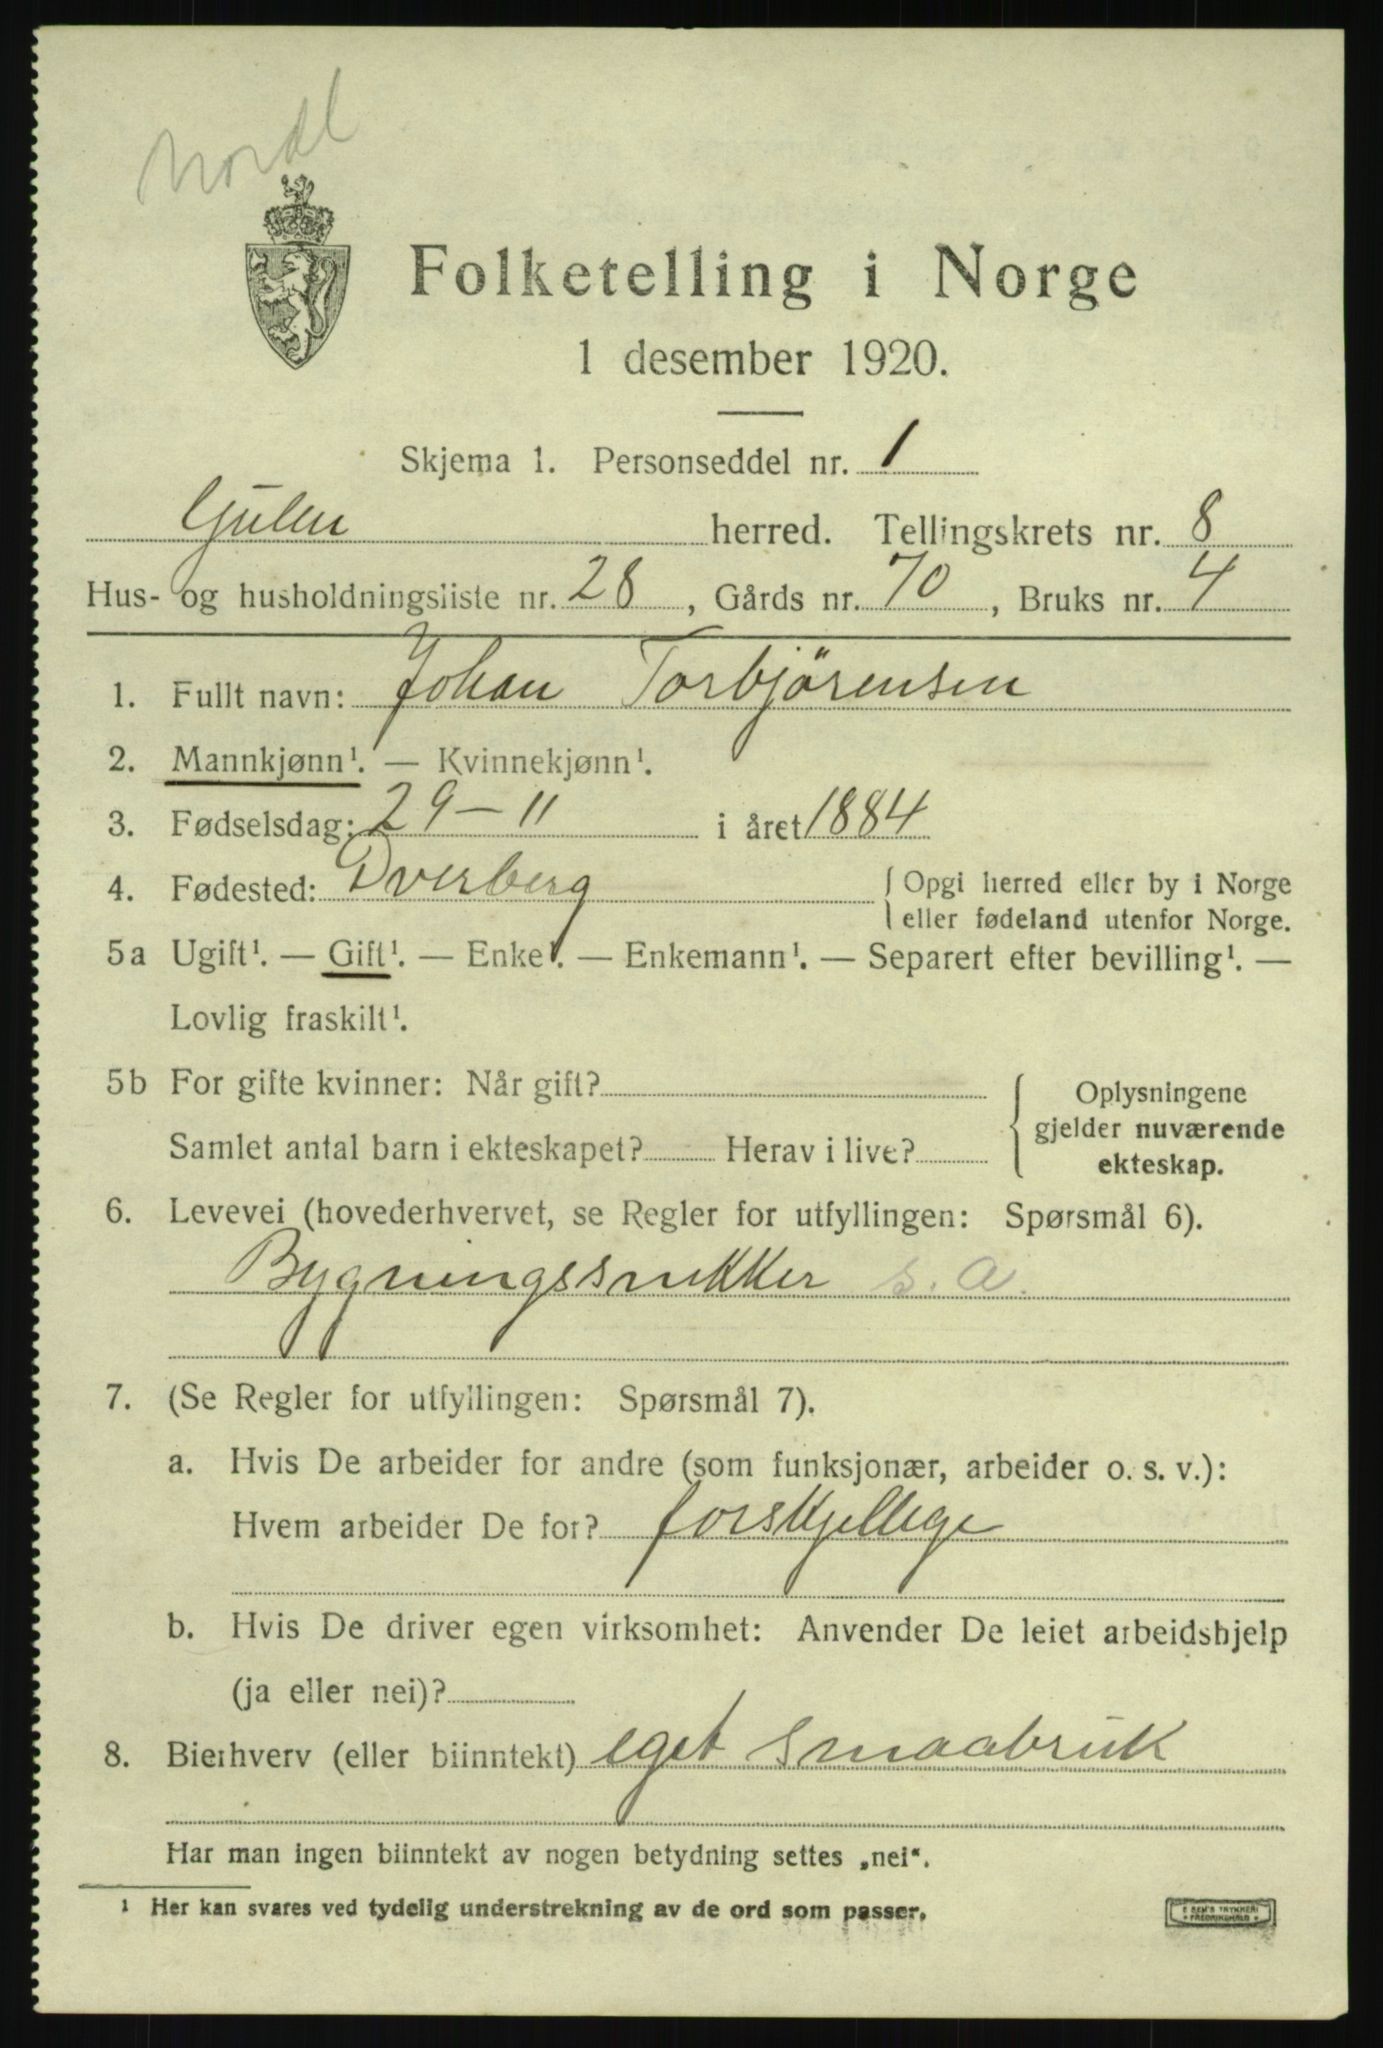 Nordl
Folketelling i Norge
1 desember 1920.
Skjema 1. Personseddel nr. 1
Gulen herred. Tellingskrets nr. 8
Hus- og husholdningsliste nr. 28, Gårds nr. 70, Bruks nr. 4
1. Fullt navn: Johan Torbjörensen
2. Mannkjønn¹. — Kvinnekjønn¹.
3. Fødselsdag: 29 — 11 i året 1884
4. Fødested: Dverberg { Opgi herred eller by i Norge
eller fødeland utenfor Norge.
5a Ugift¹. — Gift¹. — Enke¹. — Enkemann¹. — Separert efter bevilling¹. —
Lovlig fraskilt¹.
5b For gifte kvinner: Når gift?
Samlet antal barn i ekteskapet? Herav i live?
Oplysningene
gjelder nuværende
ekteskap.
6. Levevei (hovederhvervet, se Regler for utfyllingen: Spørsmål 6).
Bygningssnekker s. a.
7. (Se Regler for utfyllingen: Spørsmål 7).
a. Hvis De arbeider for andre (som funksjonær, arbeider o. s. v.):
Hvem arbeider De for? forskjellige
b. Hvis De driver egen virksomhet: Anvender De leiet arbeidshjelp
(ja eller nei)?
8. Bierhverv (eller biinntekt) eget smaabruk
Har man ingen biinntekt av nogen betydning settes „nei“.
¹ Her kan svares ved tydelig understrekning av de ord som passer.
TRYKKERI
FREDRIKSHALD